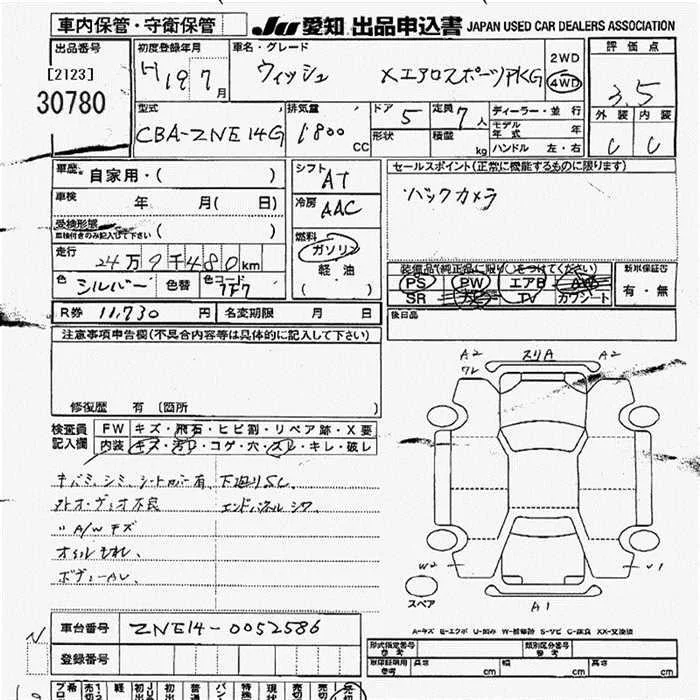 車内保管・守衛保管
JU 愛知 出品申込書 JAPAN USED CAR DEALERS ASSOCIATION
出品番号
[2123]
30780
初度登録年月
H 19 7月
車名・グレード
ウィッシュ Xエアロスポーツ PKG
2WD
4WD
評価点
3.5
外装 内装
C C
型式
CBA-ZNE14G
排気量
1800 CC
ドア 5
形状
定員 7人
積載 kg
ディーラー・並行
モデル年式 年
ハンドル 左・右
車歴 自家用・( )
車検 年 月( 日)
受検形態
車検付きのみ記入して下さい ( )
走行
24万9千480km
色 シルバー 色替 色コード 1F7
シフト AT
冷房 AAC
燃料
ガソリン
軽油
( )
セールスポイント(正常に機能するものに限ります)
バックカメラ
装備品(純正品に限り○をつけてください)
PS PW エアB AW
SR TV カワシート
新車保証書
有・無
R券 11,730 円 名変期限 月 日
後日品
注意事項申告欄(不具合内容等は具体的に記入して下さい)
修復歴 有 〔箇所 〕
検査員記入欄
FW キズ・飛石・ヒビ割・リペア跡・X要
内装 キズ・汚れ・コゲ・穴・スレ・キレ・破レ
キバミ、シミ、シートカバー有 下廻りSC
オーディオ不良 エンドパネルシワ
〃 A/W キズ
オイルもれ、
ボディーAU、
A2 スリA A2
ワレ
W2 U1
スペア A1
A-キズ E-エクボ U-凹み W-補修跡 S-サビ C-腐食 XX-交換済
車台番号 ZNE14-0052586
N
登録番号
形式指定番号 参考
類別区分番号 参考
車庫証明用 参考 長さ cm 幅 cm 高さ cm